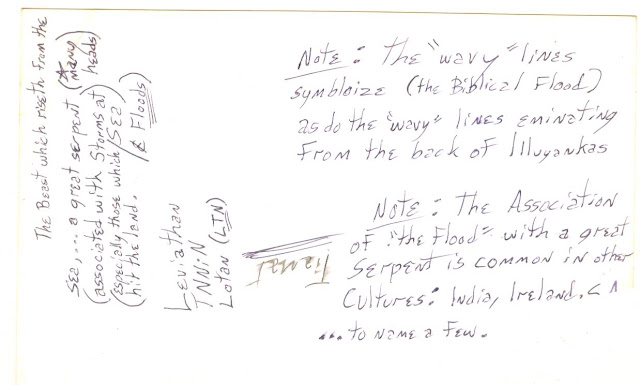 The Beast which riseth from the
sea,... a great serpent (* many heads)
(associated with Storms at Sea)
(especially those which hit the land. & Floods)
Leviathan
TNNiN
Lotan (LTN)
Tiamat
Note: The "wavy" lines
symbloize (the Biblical Flood)
as do the "wavy" lines eminating
From the back of Illuyankas
Note: The Association
of "the Flood" with a great
Serpent is common in other
Cultures: India, Ireland,
... to name a few.